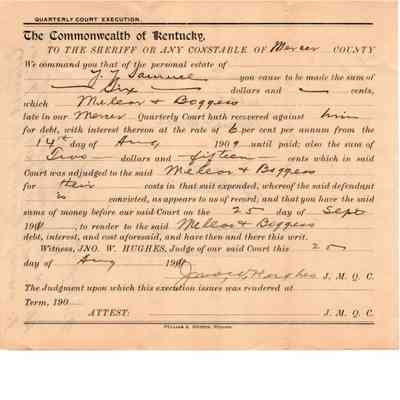 QUARTERLY COURT EXECUTION.
The Commonwealth of Kentucky,
TO THE SHERIFF OR ANY CONSTABLE OF Mercer COUNTY
We command you that of the personal estate of
you cause to be made the sum of
Six dollars and cents,
which & Boggess
late in our Mercer Quarterly Court hath recovered against him
for debt, with interest thereon at the rate of 6 per cent per annum from the
14th day of Aug 1909 until paid; also the sum of
Two dollars and fifteen cents which in said
Court was adjudged to the said & Boggess
for their costs in that suit expended, whereof the said defendant
is convicted, as appears to us of record; and that you have the said
sums of money before our said Court on the 25 day of Sept
190 , to render to the said & Boggess
debt, interest, and cost aforesaid, and have then and there this writ.
Witness, JNO. W. HUGHES, Judge of our said Court this 20
day of Aug 190 Jno W, Hughes J. M. Q. C.
The Judgment upon which this execution issues was rendered at
Term, 190
ATTEST: J. M. Q. C.